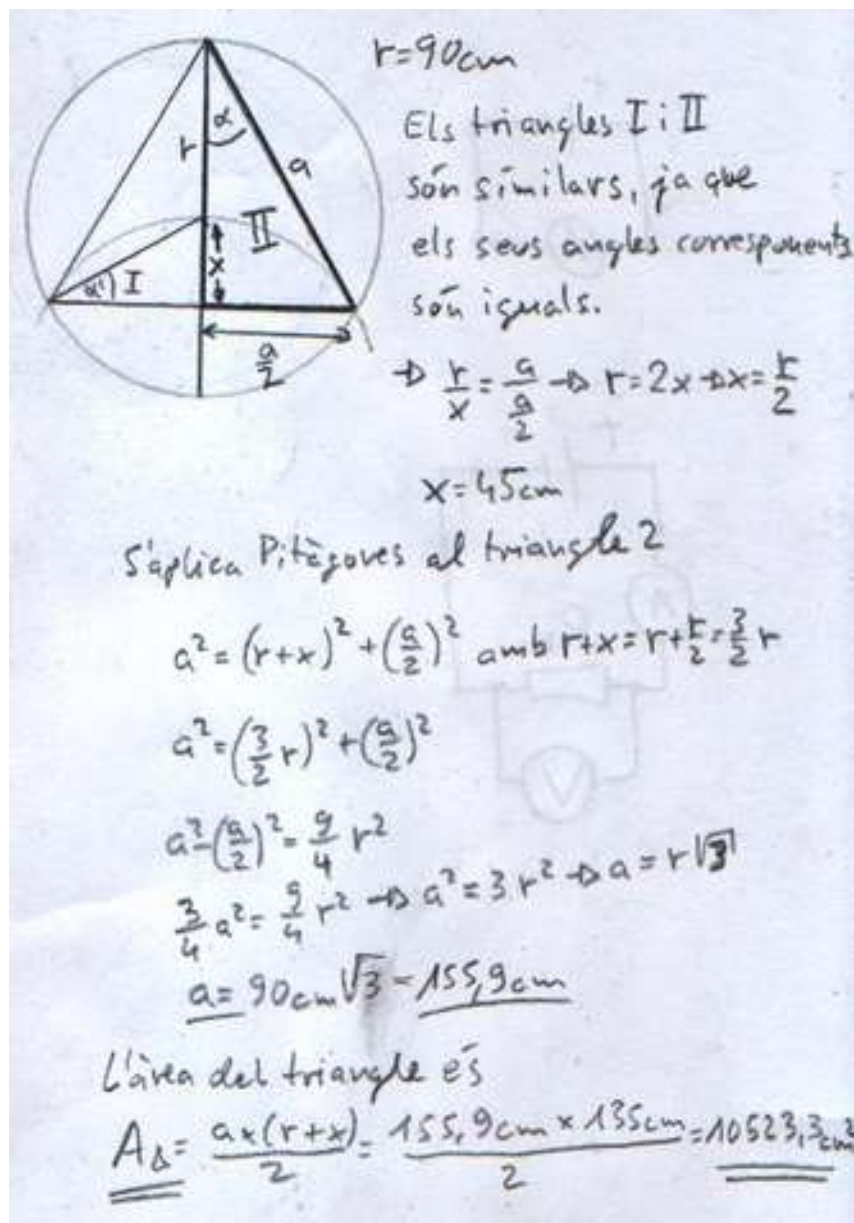 r=90cm
Els triangles I i II
són símilars, ja que
els seus angles corresponents
són iguals.
α
r
a
II
x
α') I
a/2
→ r/x = a/(a/2) → r=2x → x=r/2
x=45cm
S'aplica Pitàgores al triangle 2
a²=(r+x)²+(a/2)² amb r+x=r+r/2=3/2 r
a²=(3/2 r)²+(a/2)²
a²-(a/2)²=9/4 r²
3/4 a²=9/4 r² → a²=3r² → a=r√3
a=90cm√3=155,9cm
L'àrea del triangle és
A△= a×(r+x)/2 = 155,9cm×135cm/2 =10523,3cm²